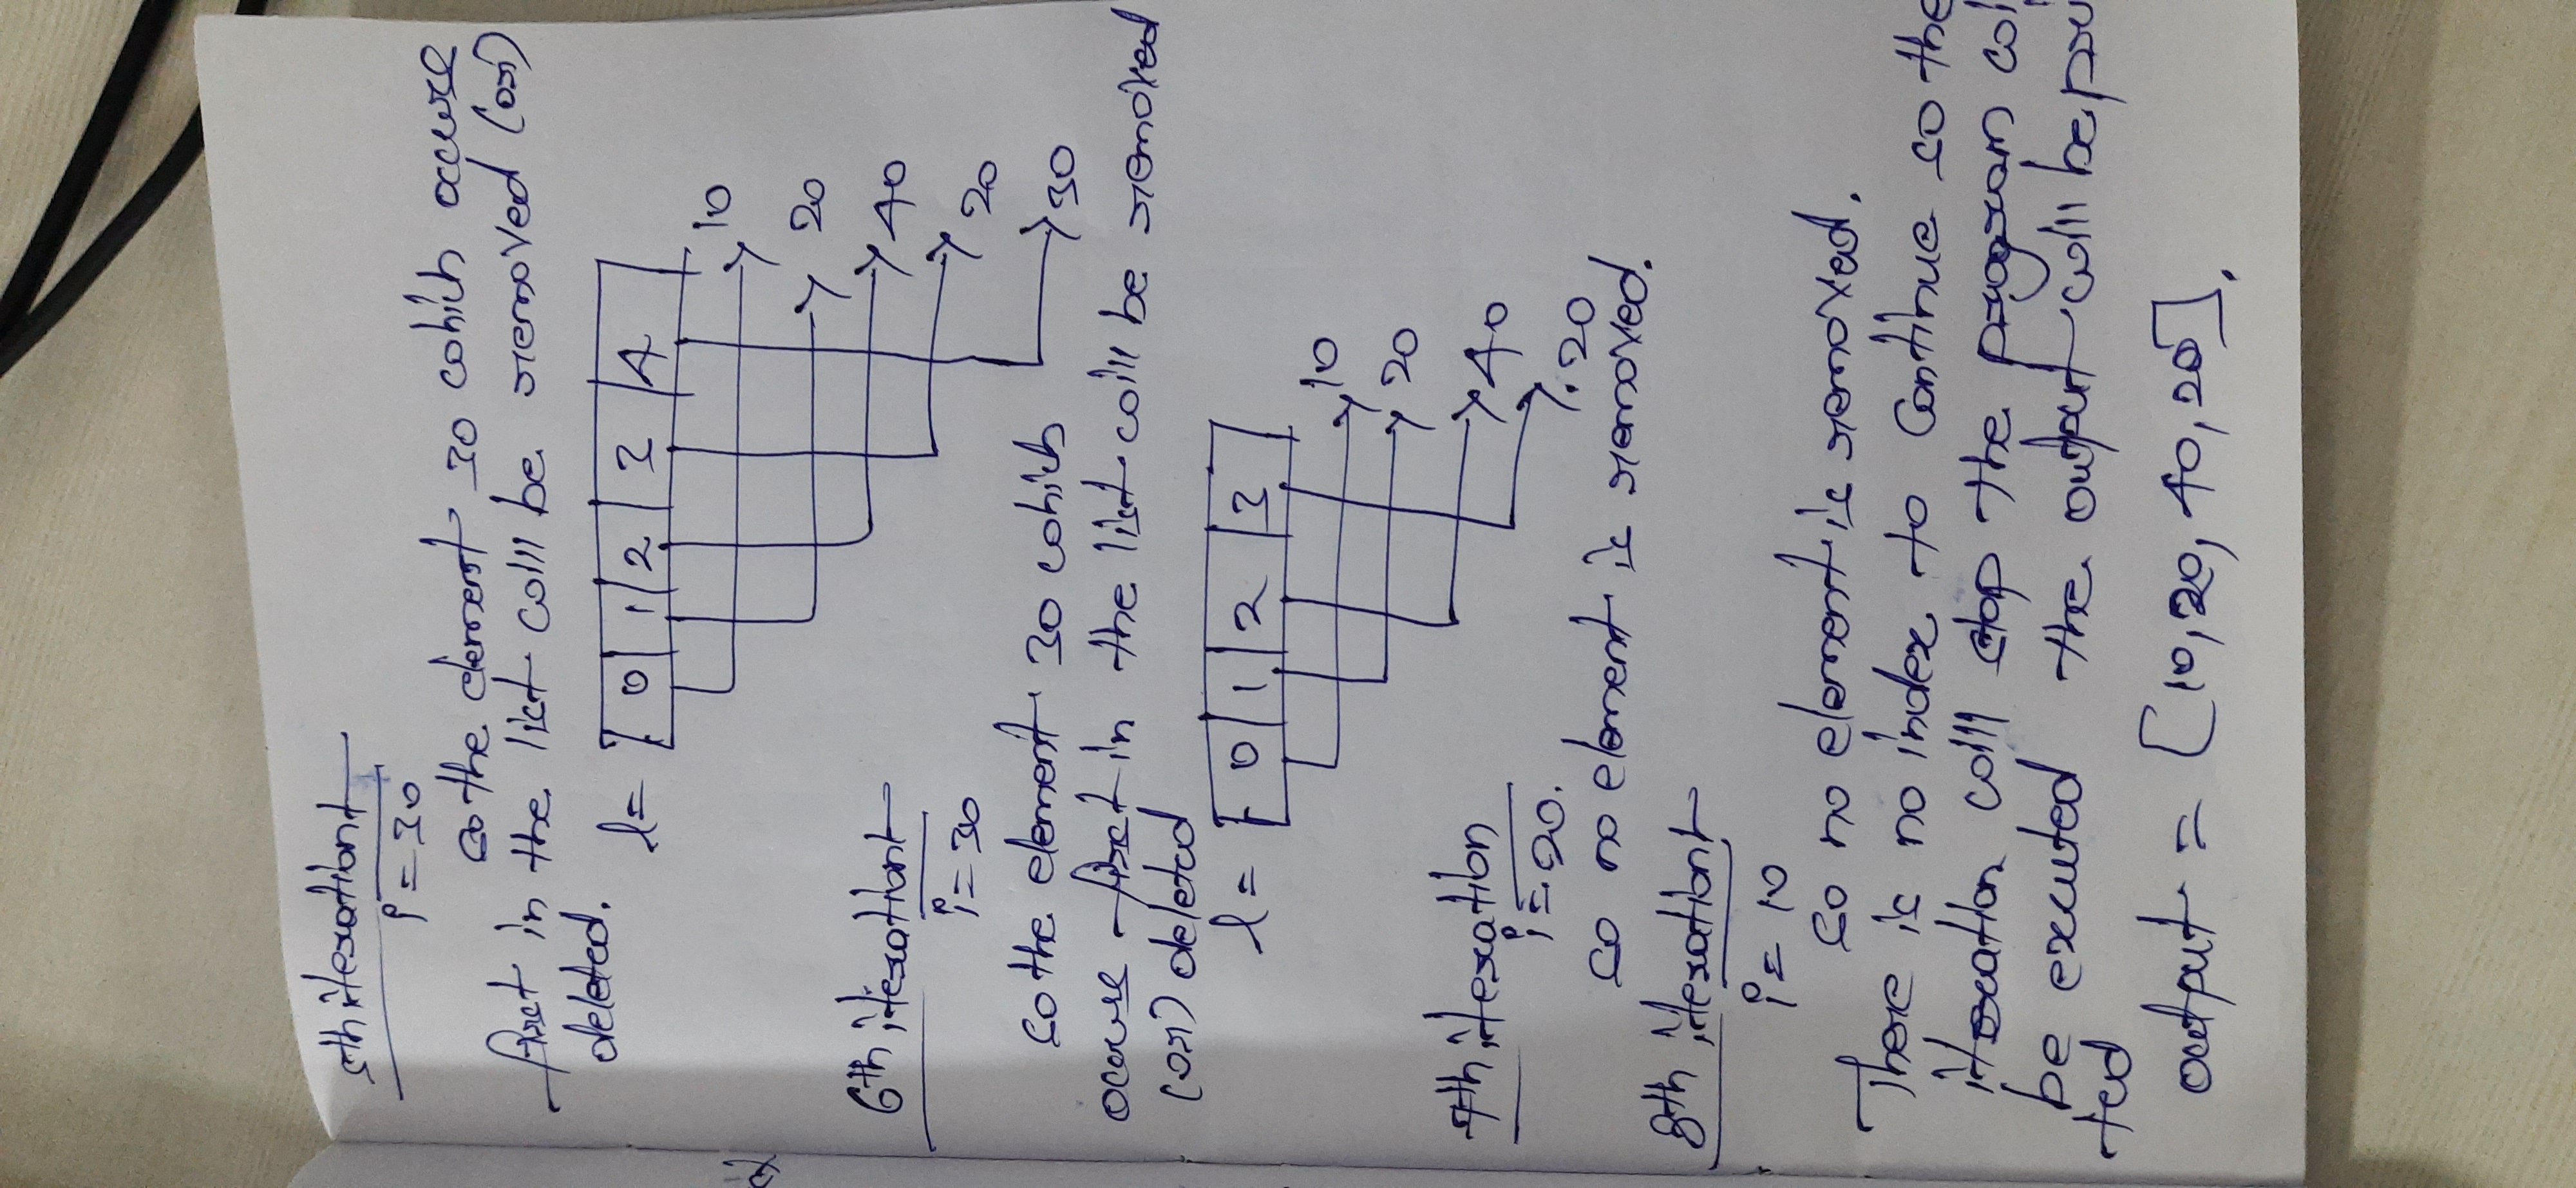 5th iteration:-
i = 30
so the element 30 which occurs
first in the list will be removed (or)
deleted.
l = 0 1 2 3 4
10
20
40
20
30
6th iteration:-
i = 30
so the element 30 which
occurs first in the list will be removed
(or) deleted
l = 0 1 2 3
10
20
40
20
7th iteration
i = 20.
so no element is removed.
8th iteration:-
i = 10
so no element is removed.
There is no index to continue so the
iteration will stop the program
be executed the output will be pri
ted
output = [10, 20, 40, 20].